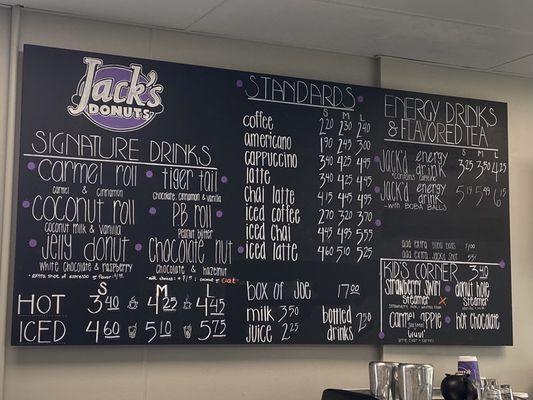 Jack's
DONUTS
SIGNATURE DRINKS
carmel roll
carmel & cinnamon
tiger tail
chocolate, cinnamon & vanilla
coconut roll
coconut milk & vanilla
PB roll
peanut butter
Jelly Donut
white chocolate & raspberry
chocolate nut
chocolate & hazelnut
S M L
HOT 3.40 4.25 4.45
ICED 4.60 5.10 5.75
STANDARDS
S M L
coffee 2.20 2.30 2.40
americano 1.90 2.45 3.00
cappuccino 3.40 4.25 4.45
latte 3.40 4.25 4.45
chai latte 4.15 4.45 4.95
iced coffee 2.70 3.20 3.70
iced chai 4.45 4.95 5.55
iced latte 4.60 5.10 5.25
box of Joe 17.00
milk 3.50
juice 2.25
bottled drinks 2.50
ENERGY DRINKS
& FLAVORED TEA
S M L
Jack'd energy
*contains caffeine
3.25 3.50 4.25
Jack'd energy
drink
with BOBA BALLS
5.19 5.99 6.15
add extra boba balls 1.00
add extra Jack'd shot
KID'S CORNER 3.40
strawberry swirl
steamer
donut hole
steamer
carmel apple
hot chocolate